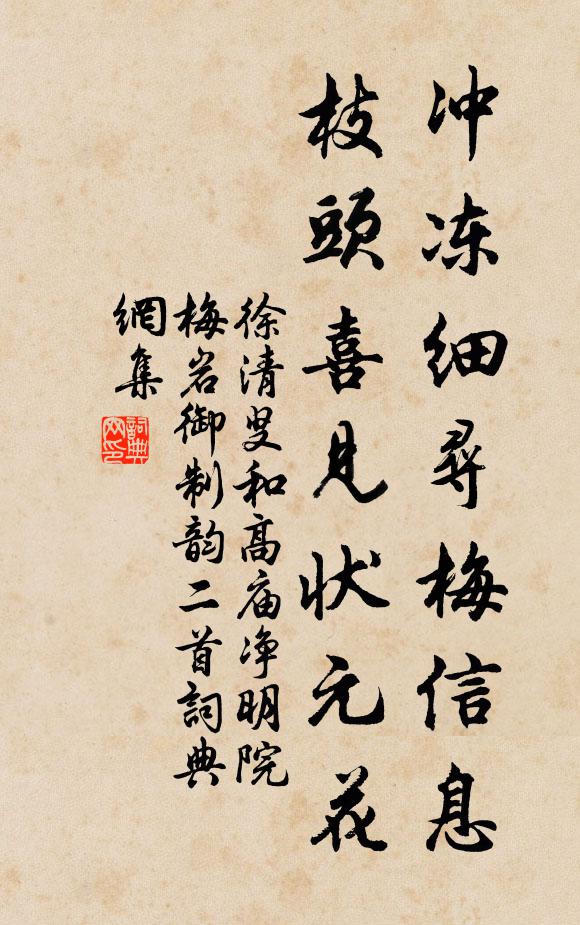 冲冻细尋梅信息
枝頭喜見状元花
徐清叟和高庙净明院
梅岩御制韵二首詞典
網集
詞典
网印